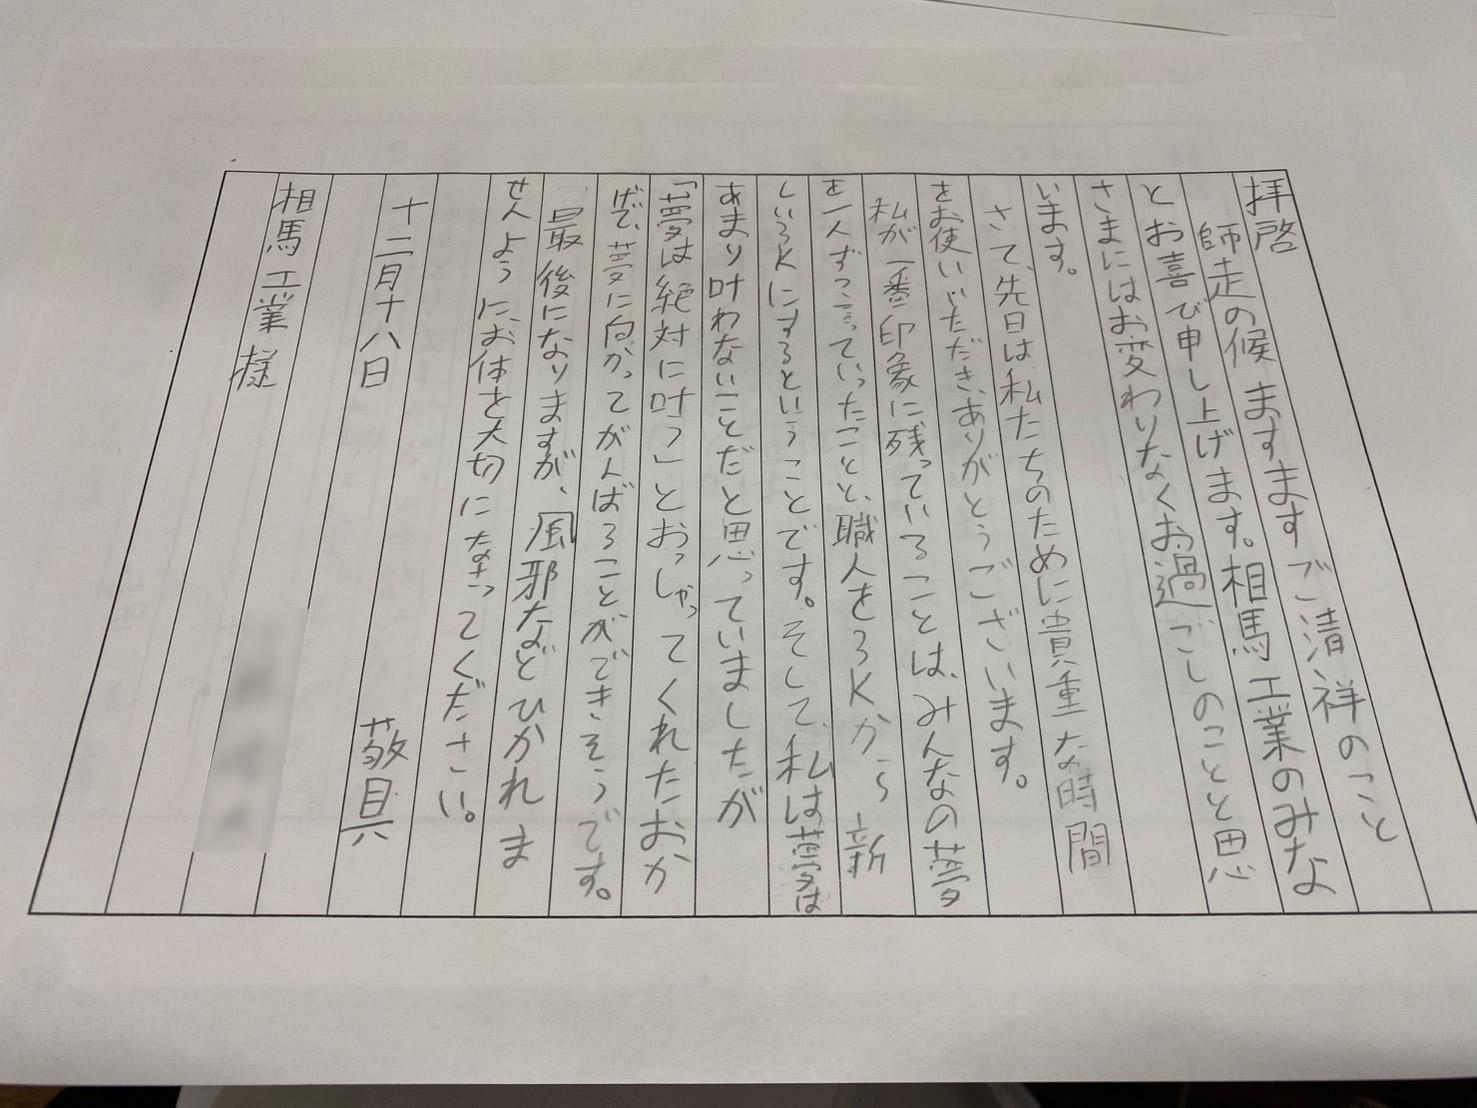 拝啓
師走の候 ますますご清祥のこと
とお喜び申し上げます。相馬工業のみな
さまにはお変わりなくお過ごしのことと思
います。
さて、先日は私たちのために貴重な時間
をお使いいただき、ありがとうございます。
私が一番印象に残っていることは、みんなの夢
を一人ずつ言っていったことと、職人を3Kから新
しい3Kにするということです。そして、私は夢は
あまり叶わないことだと思っていましたが
「夢は絶対に叶う」とおっしゃってくれたおか
げで、夢に向かってがんばることができそうです。
最後になりますが、風邪などひかれま
せんように、お体を大切になさってください。
敬具
十二月十八日
相馬工業様